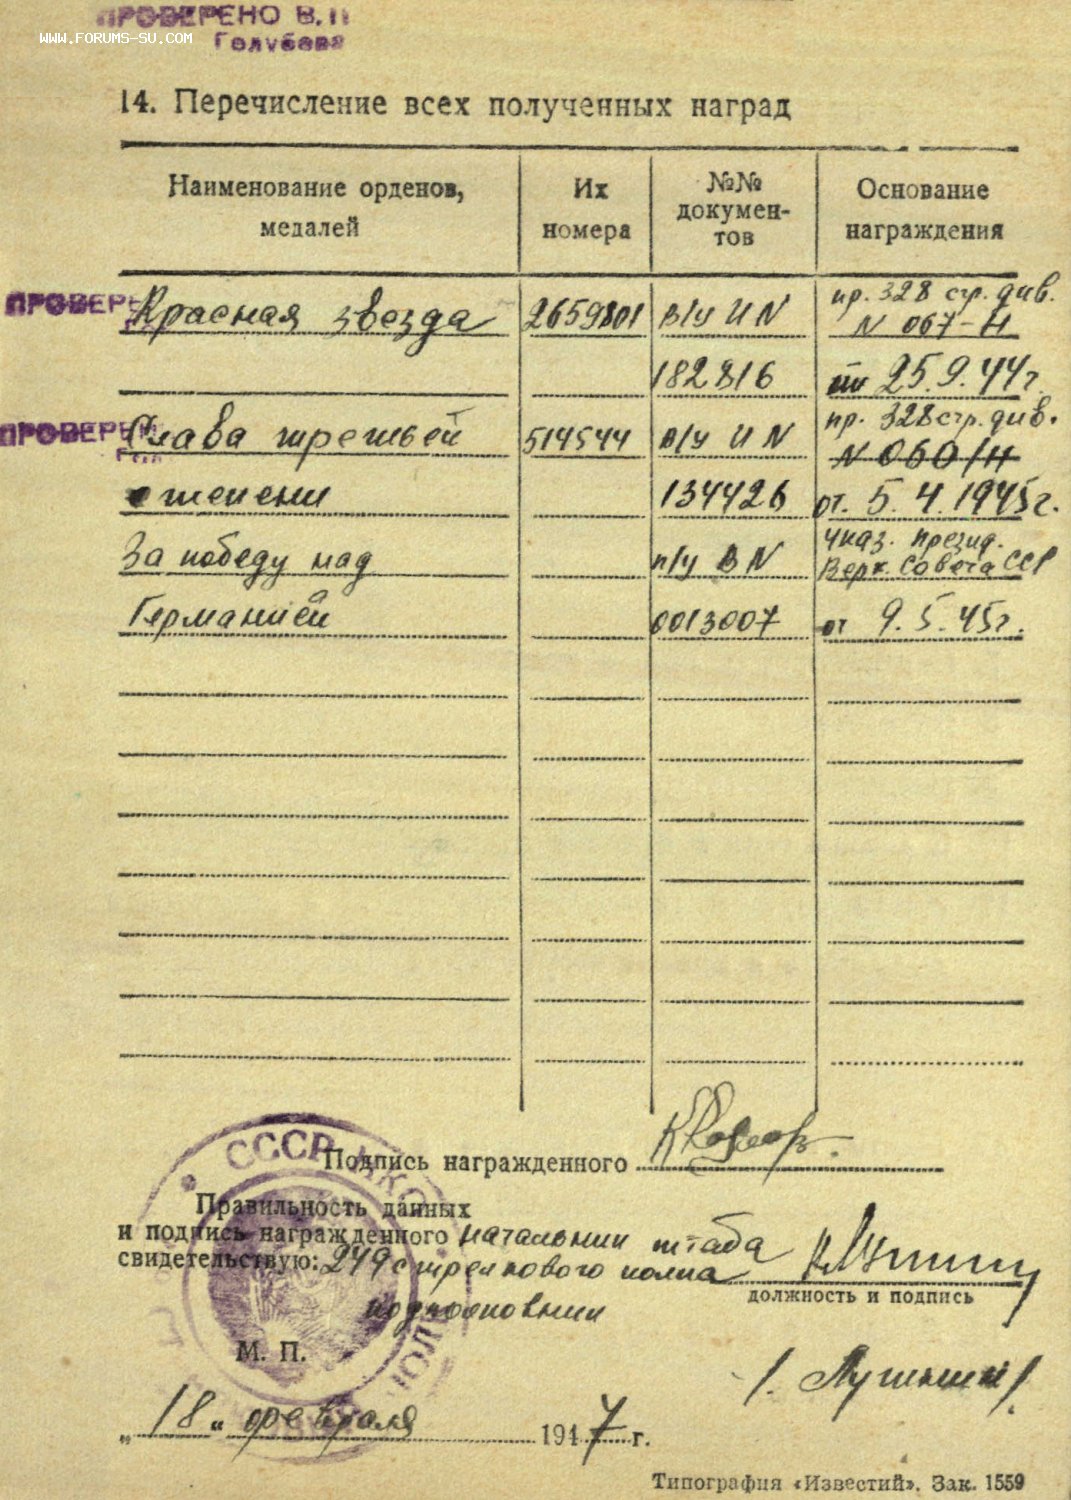 ПРОВЕРЕНО В.П
WWW.FORUMS-SU.COM
Голубева
14. Перечисление всех полученных наград
Наименование орденов, медалей
Их номера
№№ докумен-
тов
Основание награждения
ПРОВЕРЕ
Красная звезда 2659801 в/у И N пр. 328 стр. див. N 067-Н
182816 25.9.44г
ПРОВЕРЕН
Слава третьей 514544 в/у И N пр. 328 стр. див. N 060/Н
степени 134426 от. 5.4.1945г.
За победу над п/у В N Указ. Презид. Верх. Совета ССР
Германией 0013007 от 9.5.45г.
СССР
Подпись награжденного
Правильность данных
и подпись награжденного начальник штаба
свидетельствую: 249 стрелкового полка
должность и подпись
подполковник
М. П.
/. Лушкин/.
„18“ февраля 1947 г.
Типография «Известий». Зак. 1559